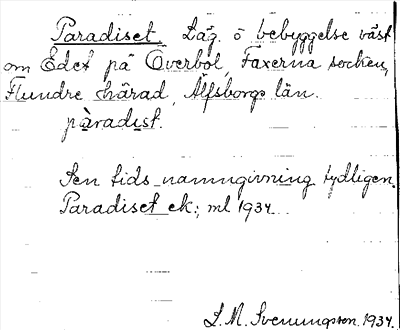 Paradiset. Låg. ö bebyggelse väst
om Edet på Överbol, Faxerna socken,
Flundre härad, Älfsborgs län.
pàradist.
Sen tids namngivning tydligen.
Paradiset ek.; ml 1934
L. M. Svenungsson. 1934.